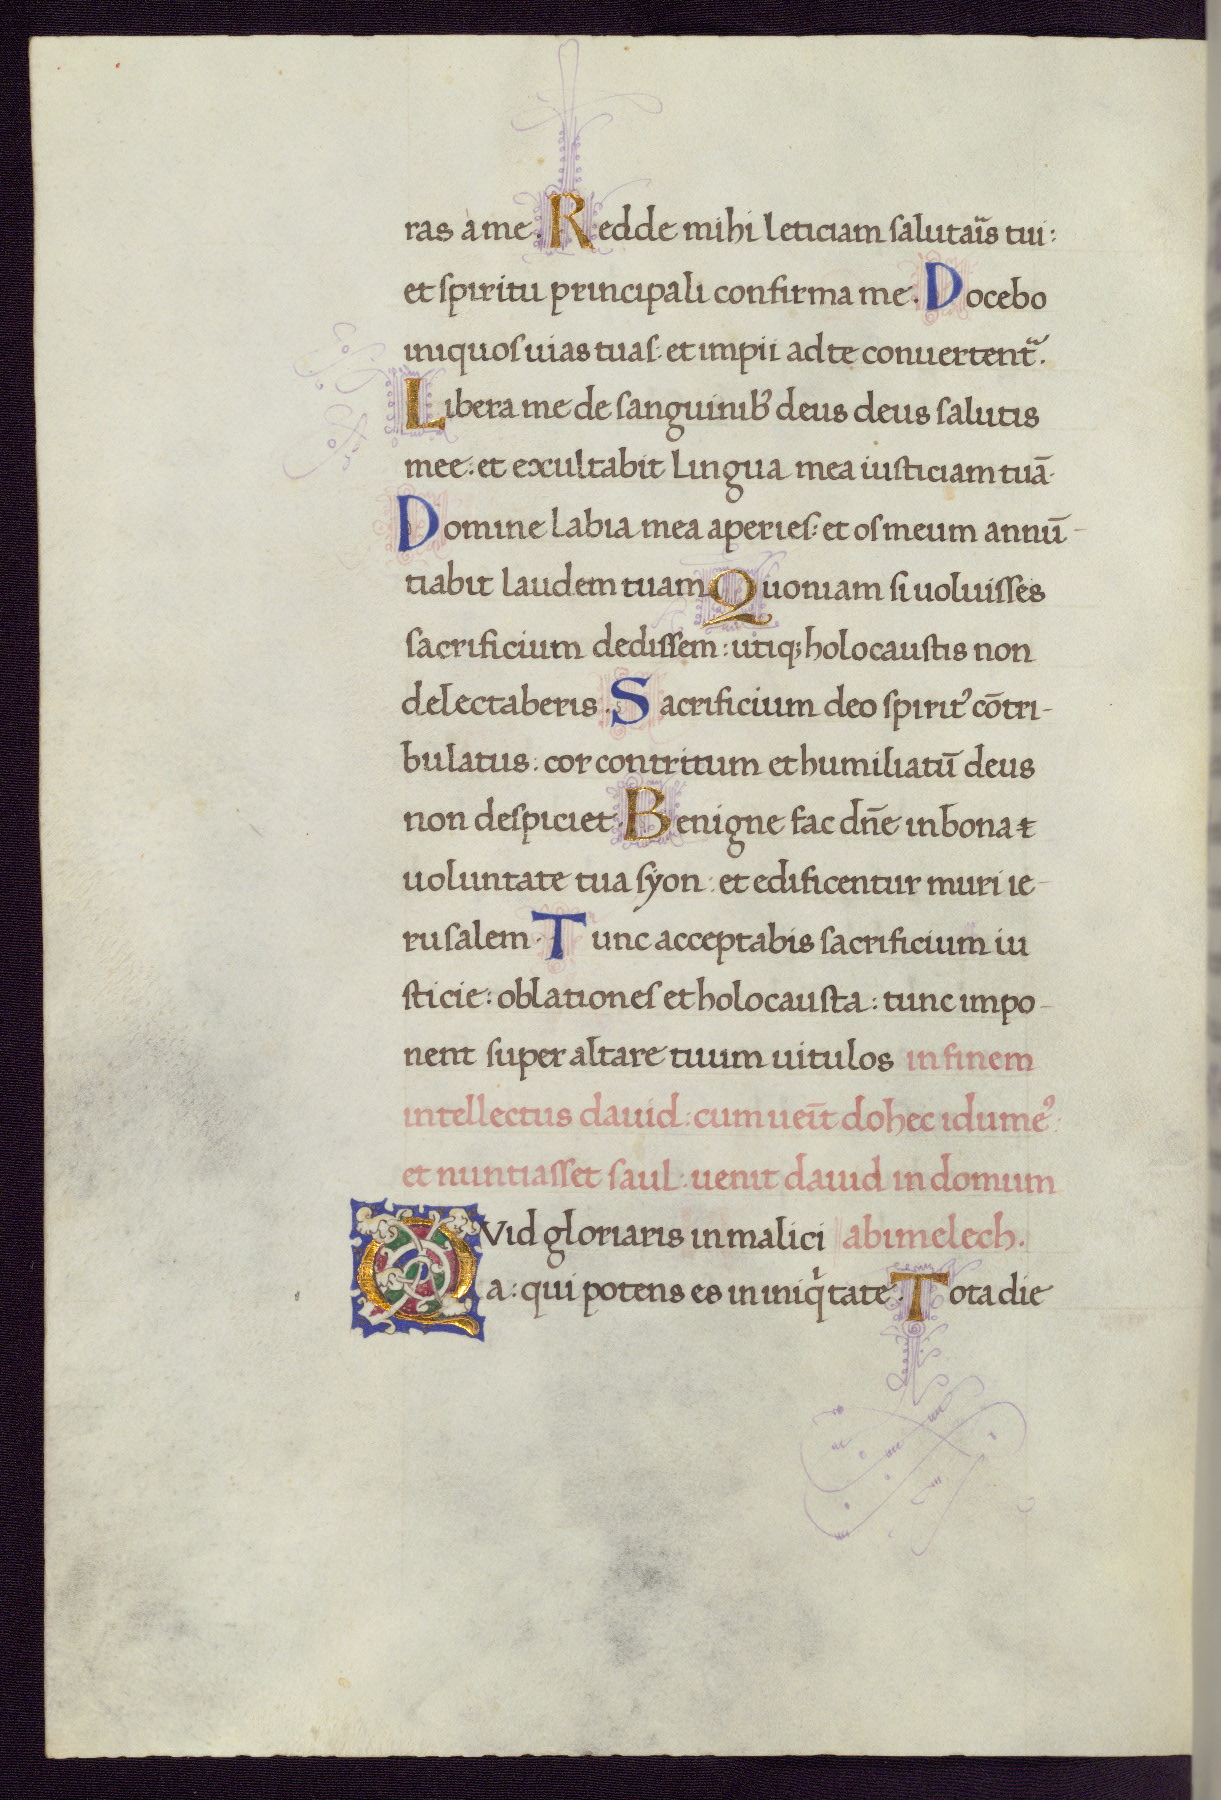 ras a me. Redde mihi leticiam salutar̄is tui:
et spiritu principali confirma me. Docebo
iniquos uias tuas: et impii ad te conuertent᷑.
Libera me de sanguinibꝰ deus deus salutis
mee: et exultabit lingua mea iusticiam tuā.
Domine labia mea aperies: et os meum annū-
tiabit laudem tuam Quoniam si uoluisses
sacrificium dedissem: utiqꝫ holocaustis non
delectaberis. Sacrificium deo spiritꝰ cōtri-
bulatus: cor contritum et humiliatū deus
non despiciet. Benigne fac dn̄e in bona t
uoluntate tua syon: et edificentur muri ie-
rusalem. Tunc acceptabis sacrificium iu
sticie: oblationes et holocausta: tunc impo-
nent super altare tuum uitulos in finem
intellectus dauid: cum ueīt dohec idumeꝰ:
et nuntiasset saul: uenit dauid in domum
QVid gloriaris in malici abimelech.
a: qui potens es in iniqⁱtate. Tota die